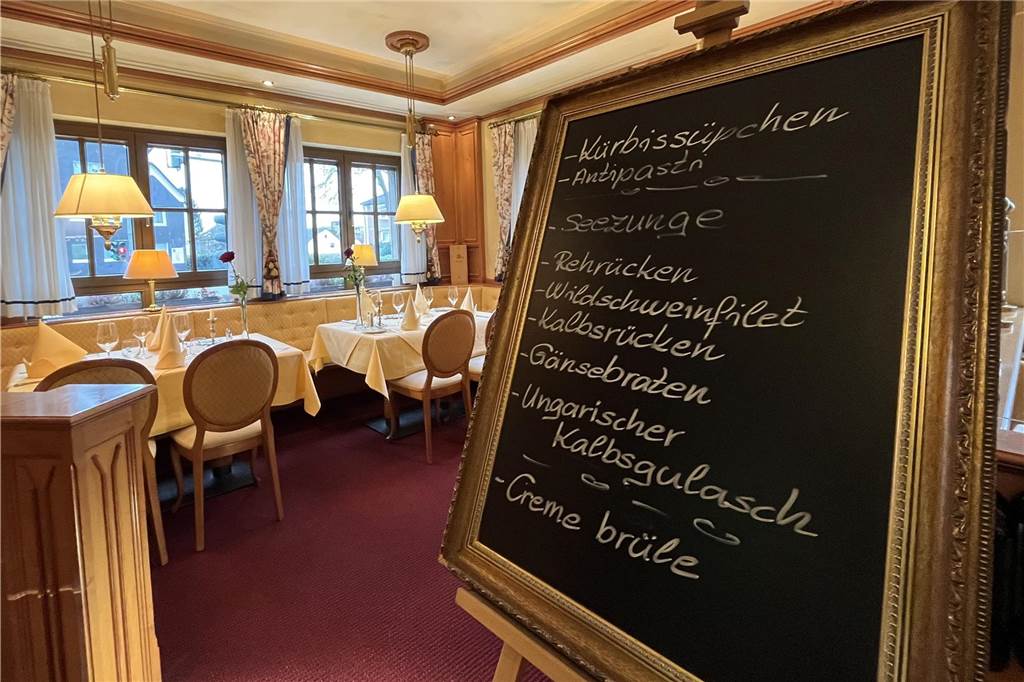 - Kürbissüpchen
- Antipasti
- Seezunge
- Rehrücken
- Wildschweinfilet
- Kalbsrücken
- Gänsebraten
- Ungarischer
Kalbsgulasch
- Creme brüle